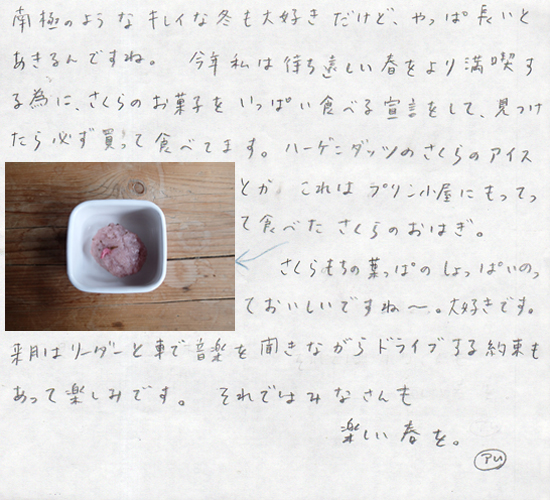 南極のようなキレイな冬も大好きだけど、やっぱ長いと
あきるんですね。 今年私は待ち遠しい春をより満喫す
る為に、さくらのお菓子をいっぱい食べる宣言をして、見つけ
たら必ず買って食べてます。ハーゲンダッツのさくらのアイス
とか これは プリン小屋にもってっ
て食べた さくらのおはぎ。
さくらもちの葉っぱの しょっぱいのっ
ておいしいですね〜。大好きです。
来月はリーダーと車で音楽を聞きながらドライブする約束も
あって楽しみです。 それではみなさんも
楽しい春を。
アリ